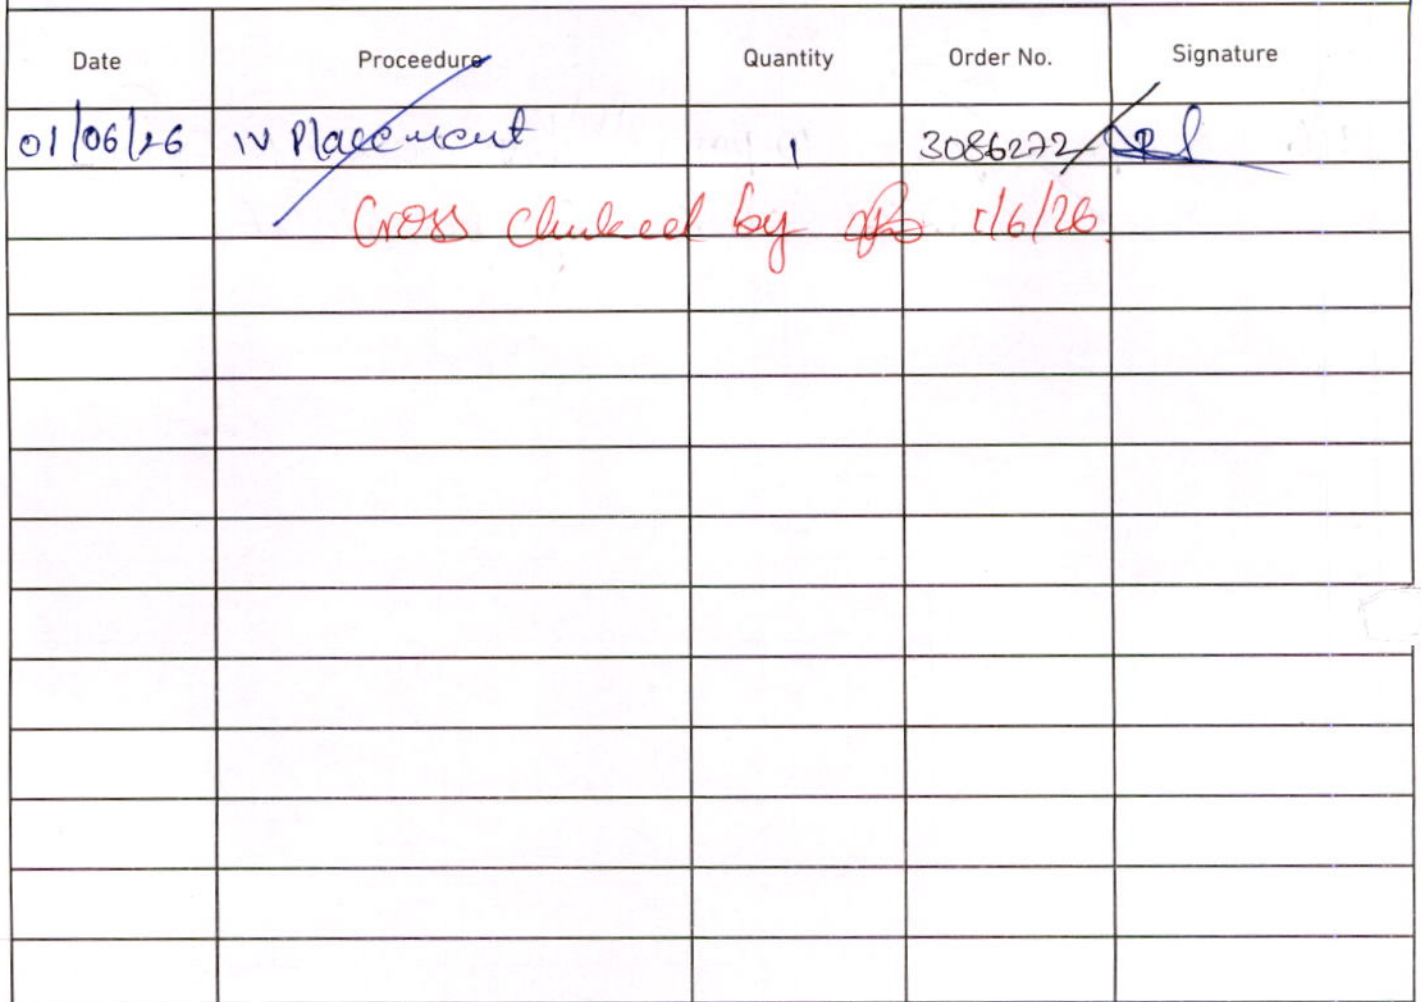 Date Proceedure Quantity Order No. Signature
01/06/26 IV Placement 1 3086272
Cross checked by 1/6/26.